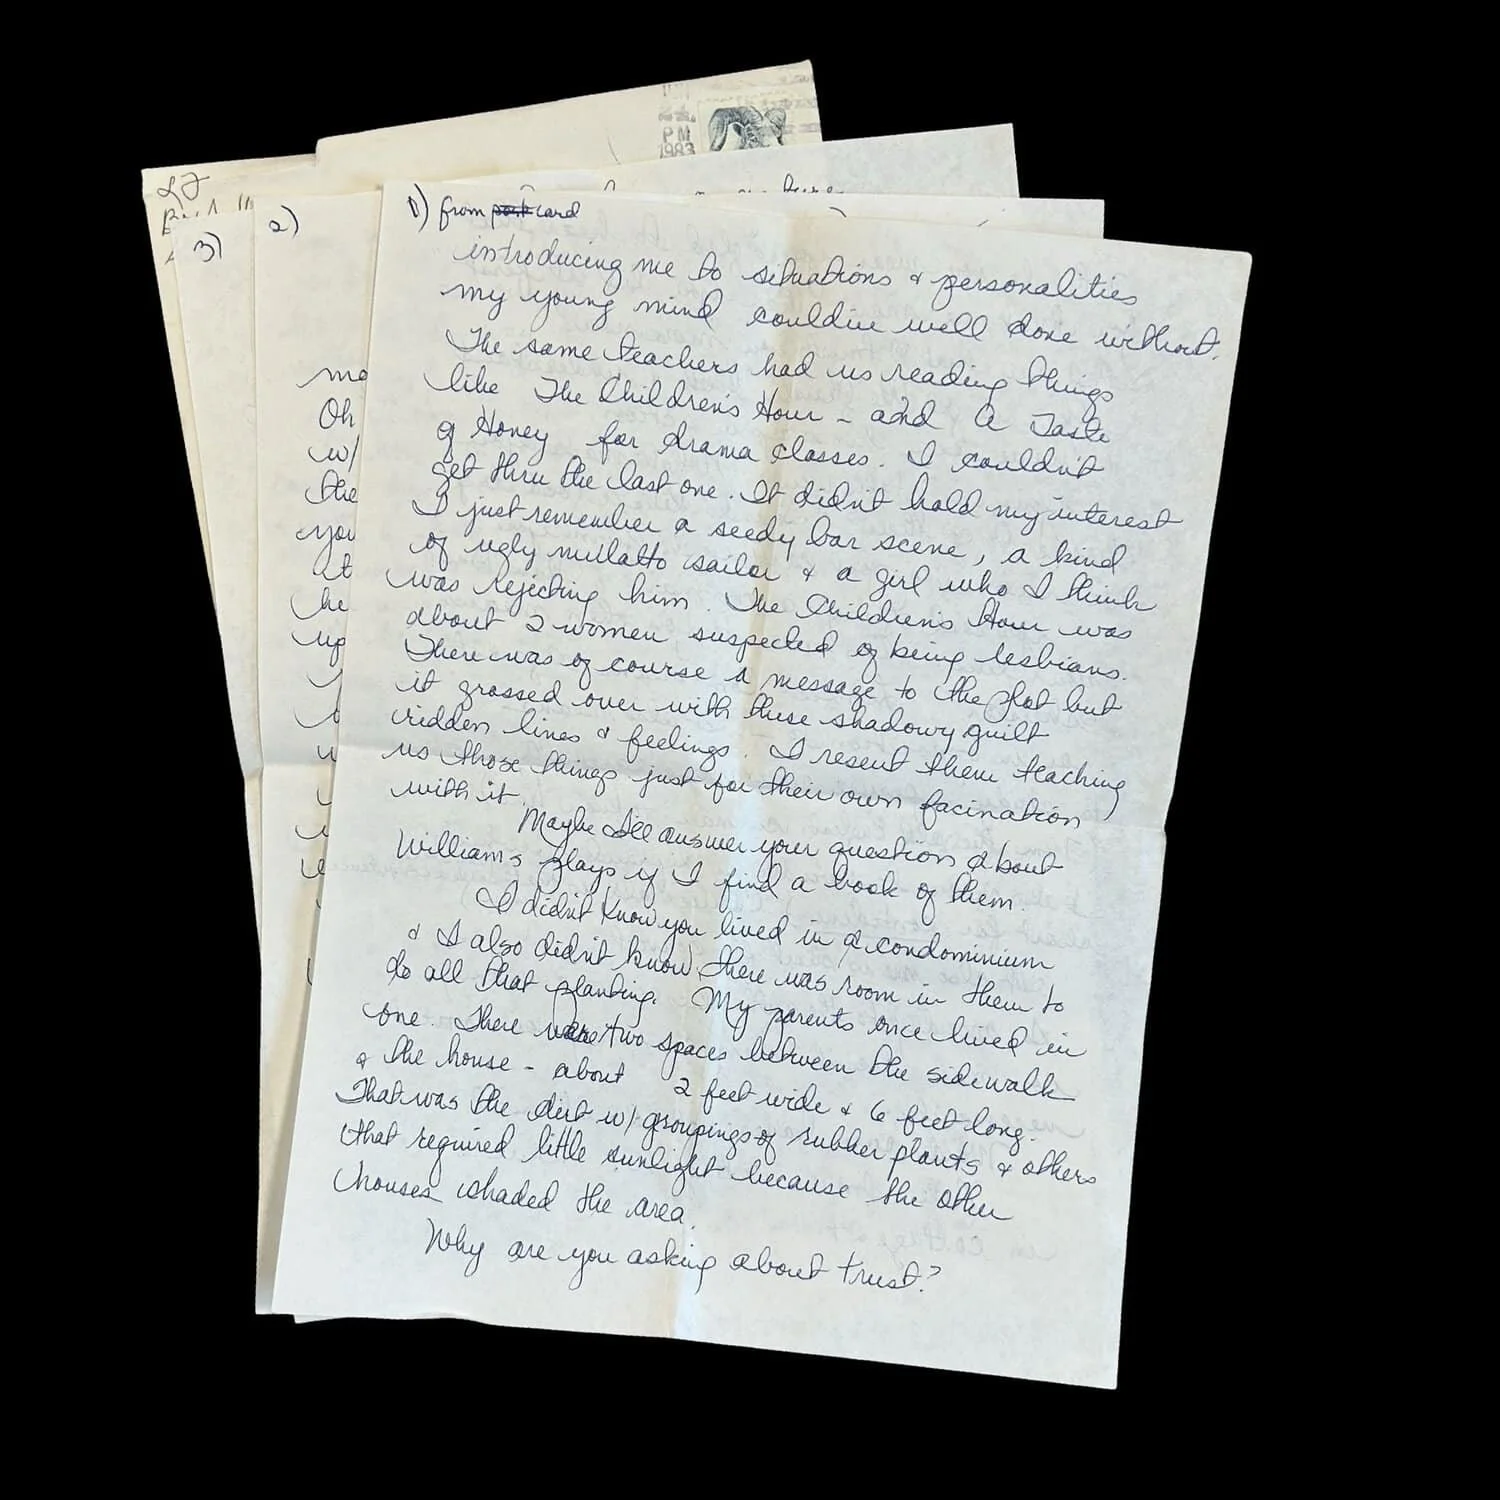 PM
1983
LF
3)
2)
ma
Oh
w/
the
you
at
he
up
1) from post card
introducing me to situations & personalities
my young mind couldive well done without.
The same teachers had us reading things
like The Children's Hour - and A Taste
of Honey for drama classes. I couldn't
get thru the last one. It didn't hold my interest
I just remember a seedy bar scene, a kind
of ugly mullatto sailor & a girl who I think
was rejecting him. The Children's Hour was
about 2 women suspected of being lesbians.
There was of course a message to the plot but
it grossed over with these shadowy guilt
ridden lines & feelings. I resent them teaching
us those things just for their own facination
with it.
Maybe I'll answer your question about
Williams plays if I find a book of them.
I didn't know you lived in a condominium
& I also didn't know there was room in them to
do all that planting. My parents once lived in
one. There were two spaces between the sidewalk
& the house - about 2 feet wide & 6 feet long.
That was the dirt w/ groupings of rubber plants & others
that required little sunlight because the other
houses shaded the area.
Why are you asking about trust?